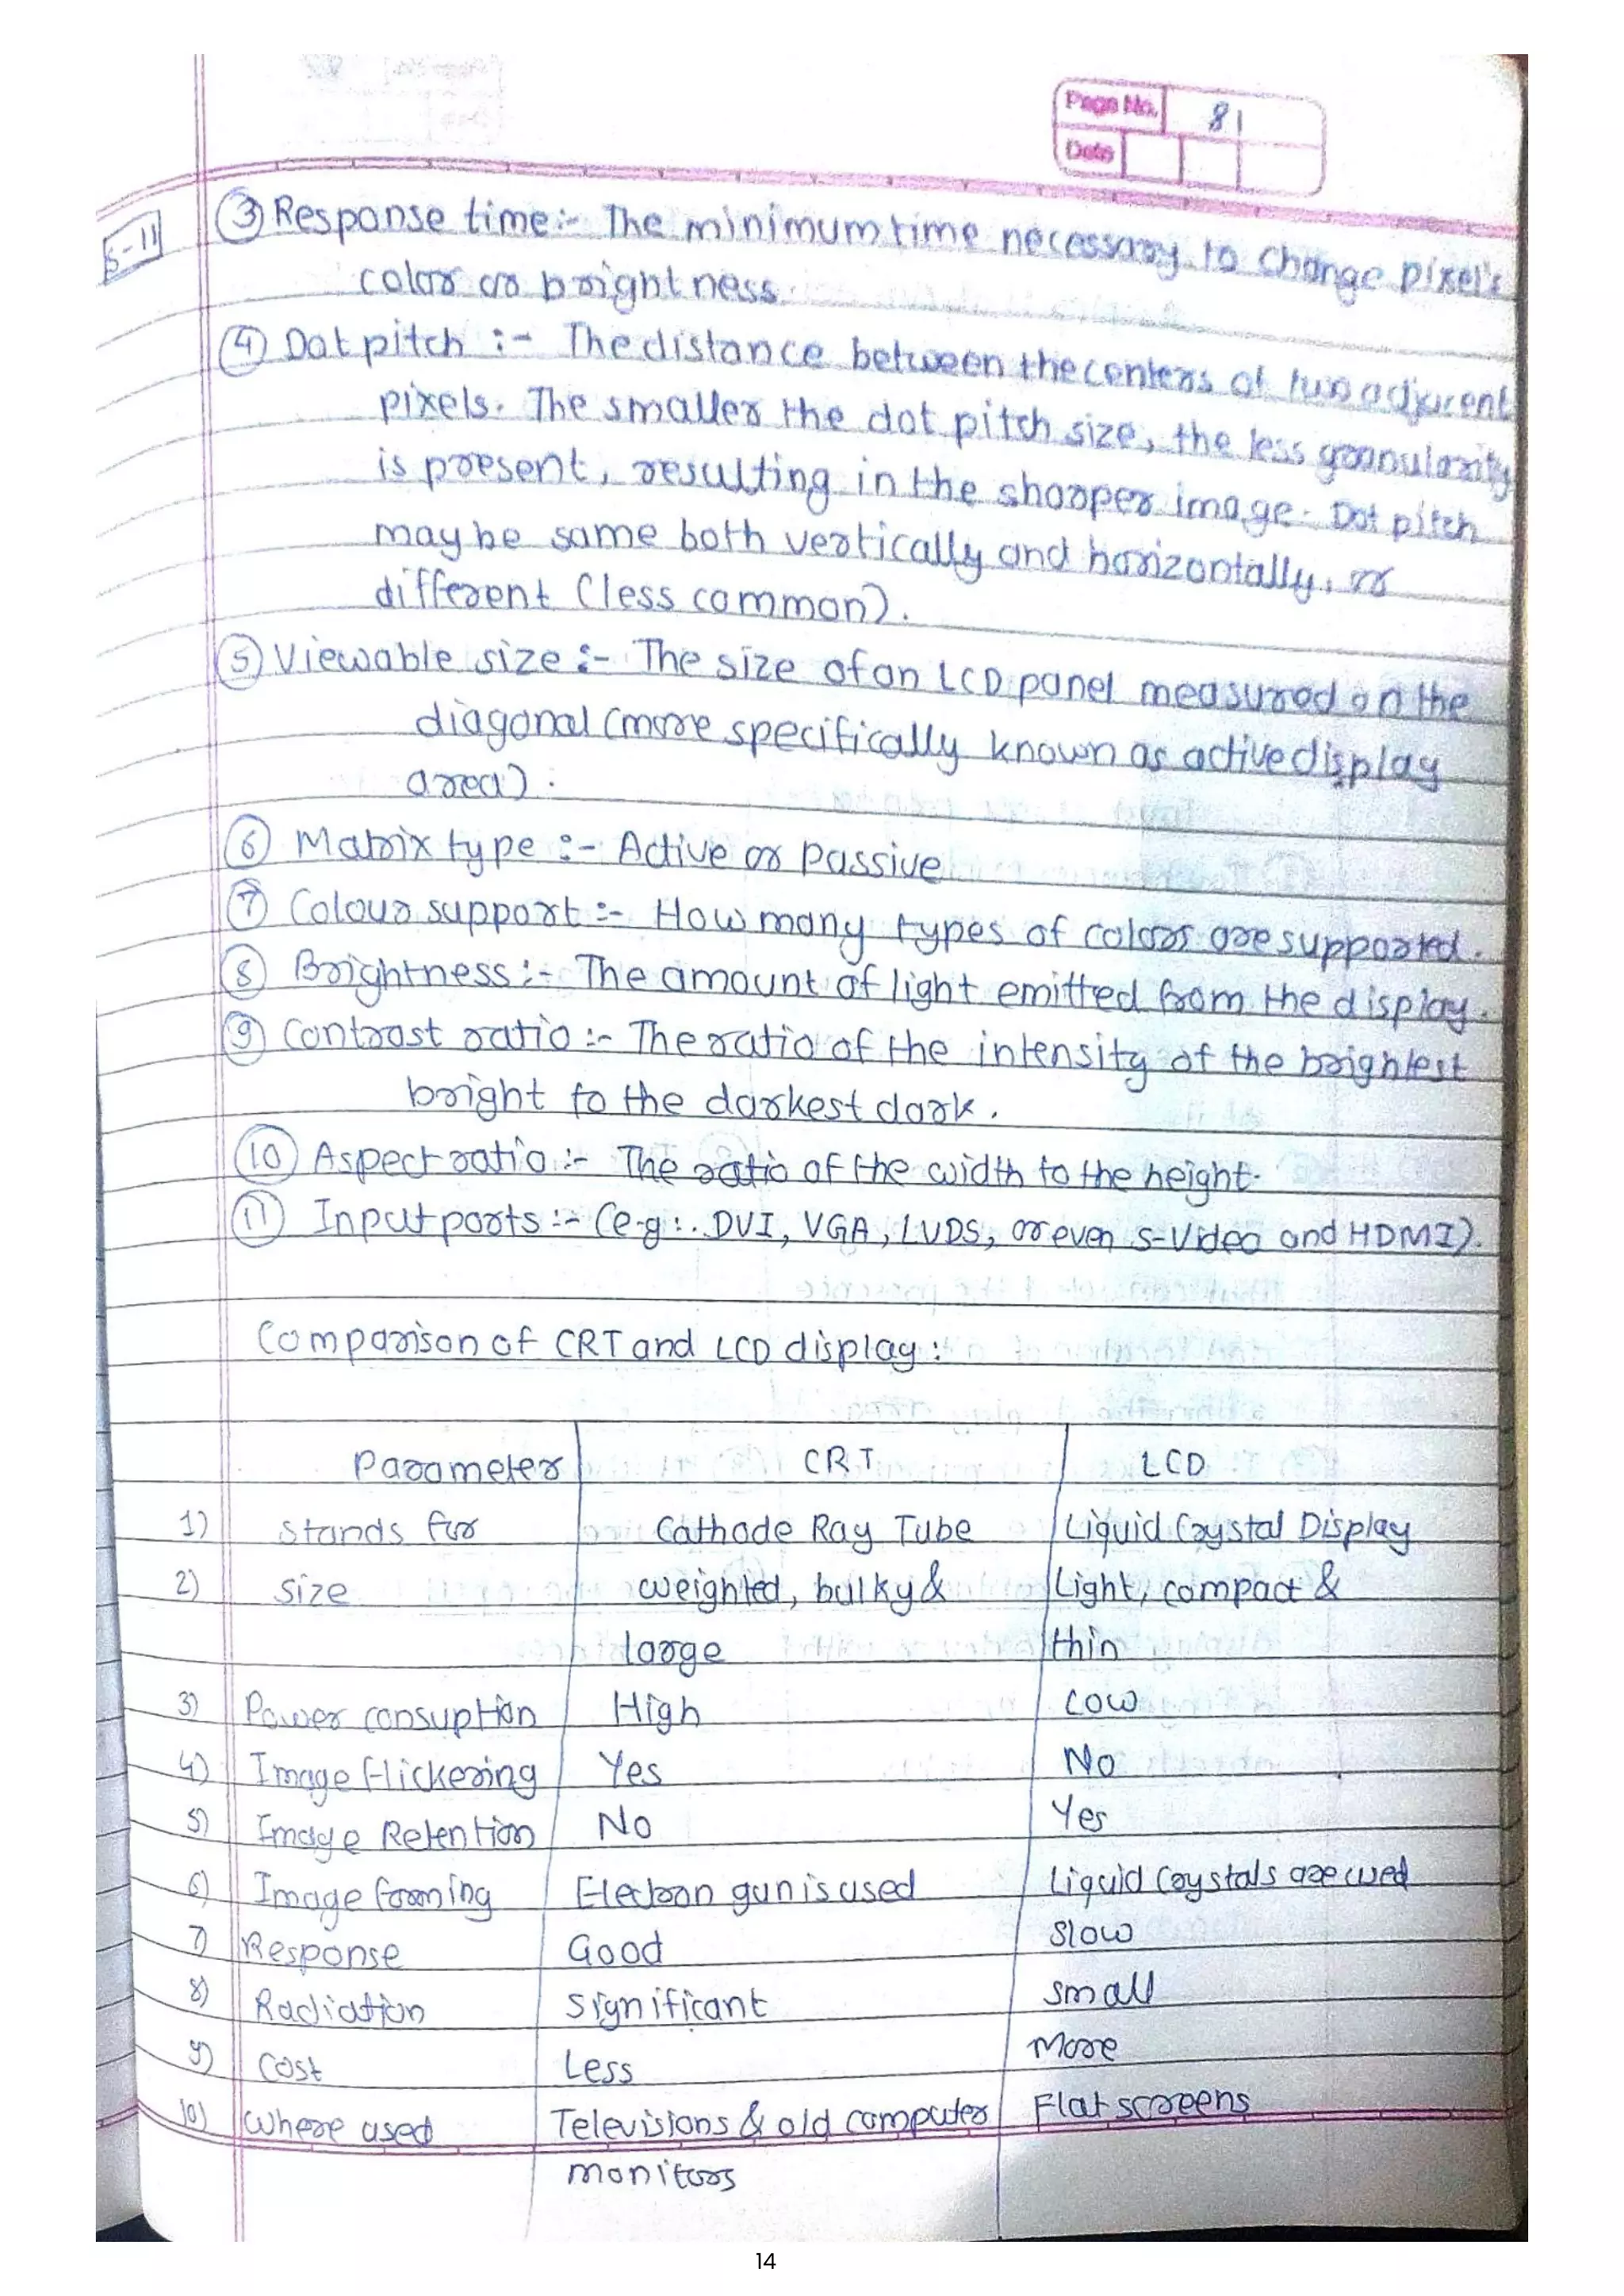 Page No. 81
Date
5-11
③ Response time:- The minimum time necessary to change pixel's
color or brightness.
④ Dot pitch :- The distance between the centers of two adjacent
pixels. The smaller the dot pitch size, the less granularity
is present, resulting in the sharper image. Dot pitch
may be same both vertically and horizontally, or
different (less common).
⑤ Viewable size :- The size of an LCD panel measured on the
diagonal (more specifically known as active display
area).
⑥ Matrix type :- Active or passive
⑦ Colour support :- How many types of colors are supported.
⑧ Brightness :- The amount of light emitted from the display.
⑨ Contrast ratio :- The ratio of the intensity of the brightest
bright to the darkest dark.
⑩ Aspect ratio :- The ratio of the width to the height.
⑪ Input ports :- (e.g :. DVI, VGA, LVDS, or even S-Video and HDMI).
Comparison of CRT and LCD display :
Parameter CRT LCD
1) Stands for Cathode Ray Tube Liquid Crystal Display
2) Size weighted, bulky & Light, compact &
large thin
3) Power consuption High Low
4) Image flickering Yes No
5) Image Retention No Yes
6) Image forming Electron gun is used Liquid Crystals are used
7) Response Good Slow
8) Radiation Significant Small
9) Cost Less More
10) Where used Televisions & old computer Flat screens
monitors
14